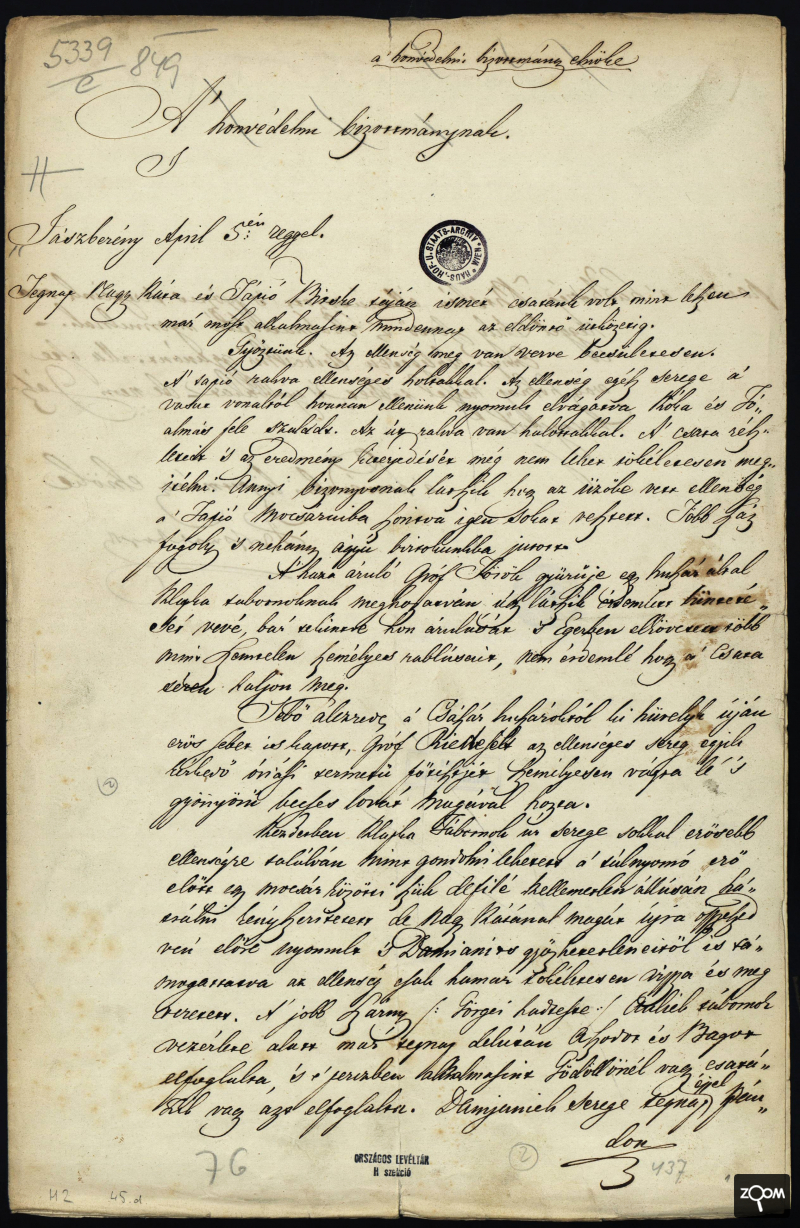 5339/e 849
a' honvédelmi bizottmány elnöke
A' honvédelmi bizottmánynak.
Jászberény April 5én reggel.
HAUS-HOF-U.STAATS-ARCHIV WIEN
Tegnap Nagy Káta és Tápió Bicske táján ismét csatánk volt mint leszen
már most alkalmasint mindennap az eldöntő ütközetig.
Győztünk. Az ellenség meg van verve becsületesen.
A' tapió rakva ellenséges holtakkal. Az ellenség egész serege a'
vasut vonalról honnan ellenünk nyomult elvágatva Kóka és Tó„
almás felé szaladt. Az út rakva van halottakkal. A' csata rész„
leteit 's az eredmény kiterjedését még nem lehet tökéletesen meg„
itélni. Annyi bizonyosnak látszik hogy az üzőbe vett ellenség
a' Tapió mocsaraiba szorítva igen sokat vesztett. Több száz
fogoly 's nehány ágyú birtokunkba jutott.
A' haza áruló Gróf Török gyürüje egy huszár által
Klapka tabornoknak meghozatván úgy látszik érdemlett bünteté„
sét vevé, bár tekintve hon árulását 's Egerben elkövetett több
mint szemtelen személyes rablásait, nem érdemlé hogy a' csata
téren haljon meg.
Sebő alezredes a' Császár huszárokról kis hüvelyk újján
erős sebet is kapott, Gróf Riedesel az ellenséges sereg egyik
órjási termetü főtisztjét személyesen vágta le 's
gyönyörü becses lovát magával hozta.
Kezdetben Klapka Tábornok úr serege sokkal erősebb
ellenségre találván mint gondolni lehetett a' túlnyomó erő
előtt egy mocsár közötti szük defilé kellemetlen állásán há„
trálni kényszeríttetett de Nagy Kátánál magát újra össze szed
vén előre nyomult 's Damianits győzhetetleneitől is tá„
mogattatva az ellenség csak hamar tökéletesen vissza és meg
veretett. A' jobb szárny /: Görgei hadteste :/ Aulich tábornok
vezérlete alatt már tegnap délután A Hodot és Bagot
elfoglalta, és 's jerizben alkalmasint Gödöllőnél vagy csatá„
zik vagy azt elfoglalta. Damjanich serege tegnap éjjel Szán„
dor
76
ORSZÁGOS LEVÉLTÁR
H szekció
2
2
437
H2 45.d
ZOOM